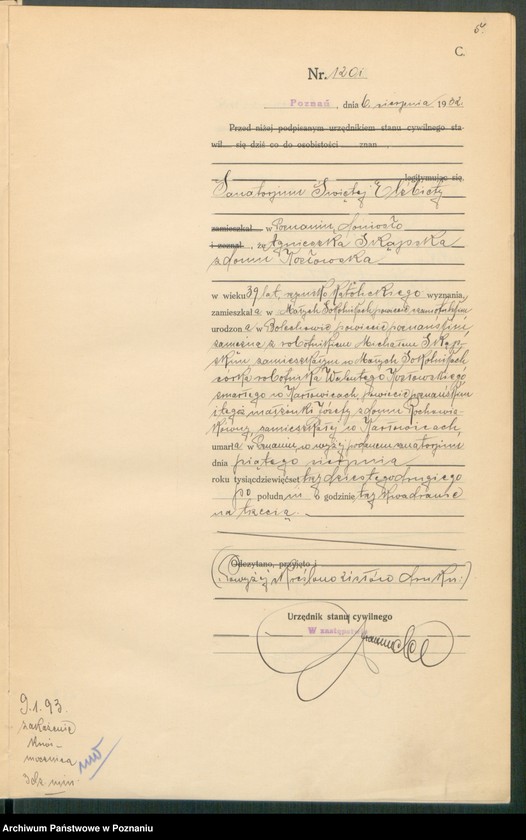 64
C.
Nr. 1201
Poznań, dnia 6 sierpnia 1932.
Przed niżej podpisanym urzędnikiem stanu cywilnego sta-
wił się dziś co do osobistości znan
legitymując się
Sanatorjum Świętej Elżbiety
zamieszkał w Poznaniu doniosło
i zeznał, że Agnieszka Skąpska
z domu Kozłowska
w wieku 39 lat rzymsko katolickiego wyznania,
zamieszkała w Małych Sokolnikach, powiecie szamotulskim
urodzona w Bolechowie powiecie poznańskim,
zamężna z robotnikiem Michałem Skąp-
skim zamieszkałym w Małych Sokolnikach,
córka robotnika Walentego Kozłowskiego
zmarłego w Karłowicach, powiecie poznańskim
i tegoż małżonki Józefy z domu
zamieszkałej w Karłowicach,
umarła w Poznaniu, w wyżej podanem sanatorjum
dnia piątego sierpnia
roku tysiącdziewięćset trzydziestego drugiego
po południu o godzinie trzy kwadranse
na trzecią.
Odczytano, przyjęto i
(Powyżej skreślono zistów druku.)
Urzędnik stanu cywilnego
W zastępstwie
9.1.93.
zakażenie
3 dz. min
Archiwum Państwowe w Poznaniu